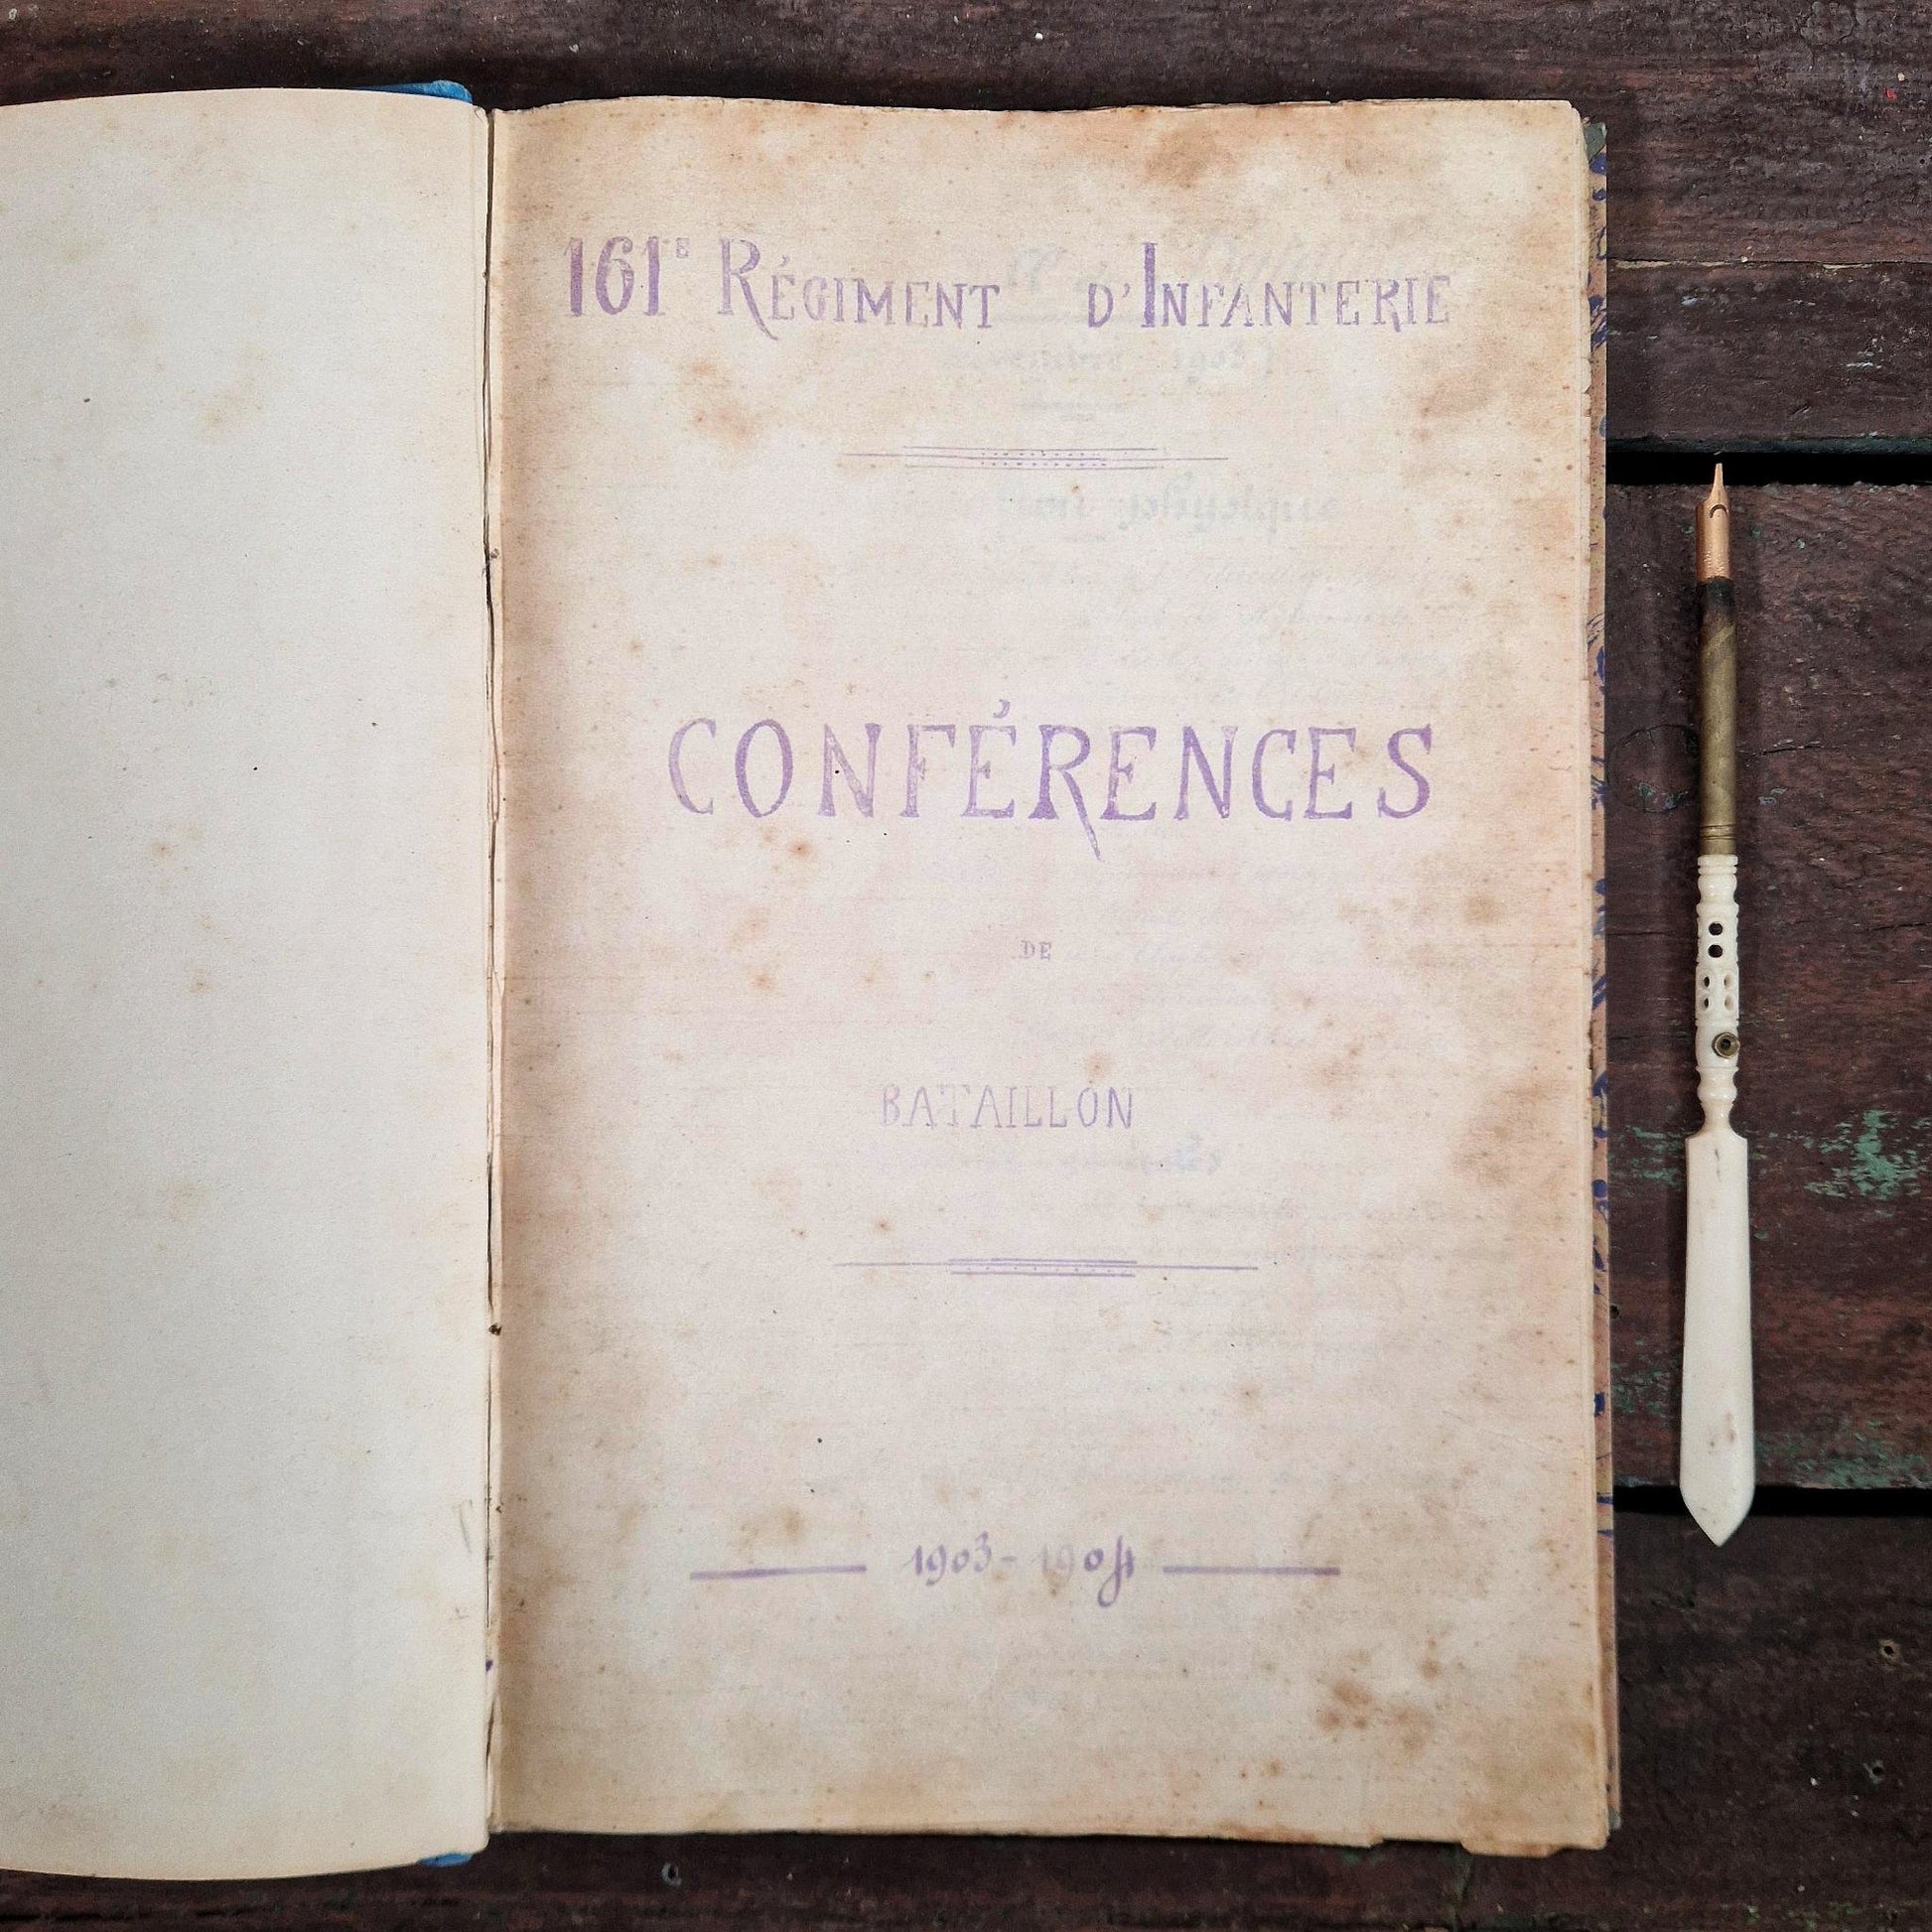 161E RÉGIMENT D'INFANTERIE
CONFÉRENCES
DE
BATAILLON
1903-1904